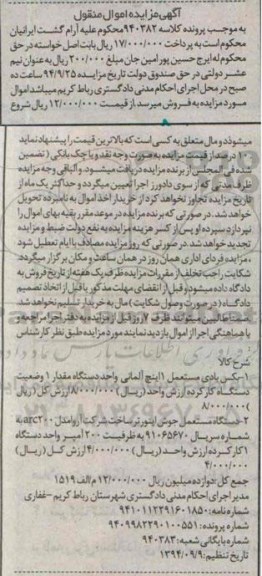 آگهی مزایده اموال منقول
به موجب پرونده کلاسه ۹۴۰۳۸۲ محکوم علیه آرام گشت ایرانیان
محکوم است به پرداخت ۱۷/۰۰۰/۰۰۰ ریال بابت اصل خواسته در حق
محکوم له ایرج حسین پور امین جان مبلغ ۲۰۰/۰۰۰ ریال به عنوان نیم
عشر دولتی در حق صندوق دولت تاریخ مزایده ۹۴/۹/۲۵ ساعت ده
صبح در محل اجرای احکام مدنی دادگستری رباط کریم میباشد اموال
مورد مزایده به فروش میرسد. از قیمت ۱۲/۰۰۰/۰۰۰ ریال شروع
میشود و مال متعلق به کسی است که بالاترین قیمت را پیشنهاد نماید
۱۰ درصد از قیمت مزایده به صورت وجه نقد و یا چک بانکی (تضمین
شده) فی المجلس از برنده مزایده دریافت میشود. و الباقی وجه مزایده
ظرف مدتی که از سوی دادورز اجرا تعیین میگردد و حداکثر یک ماه از
تاریخ مزایده تجاوز نخواهد کرد از خریدار اخذ اموال به نامبرده تحویل
خواهد شد. در صورتی که برنده مزایده در موعد مقرر بقیه بهای اموال را
نپردازد سپرده او پس از کسر هزینه مزایده به نفع دولت ضبط و مزایده
تجدید خواهد شد. در صورتی که روز مزایده مصادف با ایام تعطیل شود
، مزایده فردای اداری همان روز در همان ساعت و مکان برگزار میگردد.
شکایت راجب تخلف از مقررات مزایده ظرف یک هفته از تاریخ فروش به
دادگاه داده میشود و قبل از انقضای مهلت مذکور یا قبل از اتخاذ تصمیم
دادگاه (در صورت وصول شکایت) مال به خریدار تسلیم نخواهد شد
طالبین میتوانند ظرف ۷ روز قبل از مزایده به دفتر اجرا مراجعه و
با هماهنگی اجرا از اموال بازدید نمایند مورد مزایده طبق نظر کارشناس
شرح کالا
۱- بکس بادی مستعمل ۱ اینچ آلمانی واحد دستگاه مقدار ۱ وضعیت
دستگاه کارکرده ارزش واحد (ریال) ۸/۰۰۰/۰۰۰ ارزش کل (ریال
۸/۰۰۰۰۰۰)
۲- دستگاه مستعمل جوش اینورتر ساخت شرکت آروامدل arc۲۰۰ به
شماره سریال ۹۱۰۶۵۶۷۰ به ظرفیت ۲۰۰ آمپر واحد دستگاه
۱ کارکرده ارزش واحد (ریال) ۴/۰۰۰/۰۰۰ ارزش کل (ریال)
۴/۰۰۰/۰۰۰
جمع کل: دوازده میلیون ریال ۱۲/۰۰۰/۰۰۰ م الف ۱۵۱۹
مدیر اجرای احکام مدنی دادگستری شهرستان رباط کریم - غفاری
شماره نامه: ۹۴۱۰۱۱۲۲۹۱۶۰۱۸۵۰
شماره پرونده: ۹۴۰۹۹۸۲۲۹۰۱۰۰۵۵۱
شماره بایگانی شعبه: ۹۴۰۳۸۳
تاریخ تنظیم: ۱۳۹۴/۰۹/۹